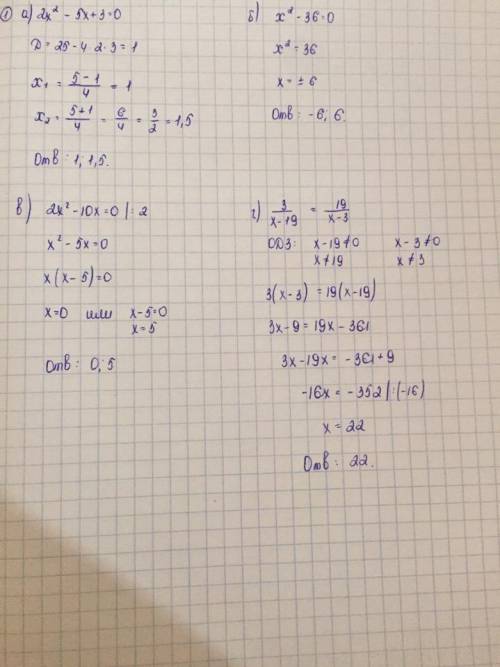 ① а) 2x² - 5x + 3 = 0
D = 25 - 4 · 2 · 3 = 1
x₁ = (5-1)/4 = 1
x₂ = (5+1)/4 = 6/4 = 3/2 = 1,5
Отв: 1; 1,5.
б) x² - 36 = 0
x² = 36
x = ± 6
Отв: -6; 6.
в) 2x² - 10x = 0 |: 2
x² - 5x = 0
x(x - 5) = 0
x = 0 или x - 5 = 0
x = 5
Отв: 0; 5
г) 3/(x-19) = 19/(x-3)
ОДЗ: x - 19 ≠ 0 x - 3 ≠ 0
x ≠ 19 x ≠ 3
3(x - 3) = 19(x - 19)
3x - 9 = 19x - 361
3x - 19x = -361 + 9
-16x = -352 |: (-16)
x = 22
Отв: 22.